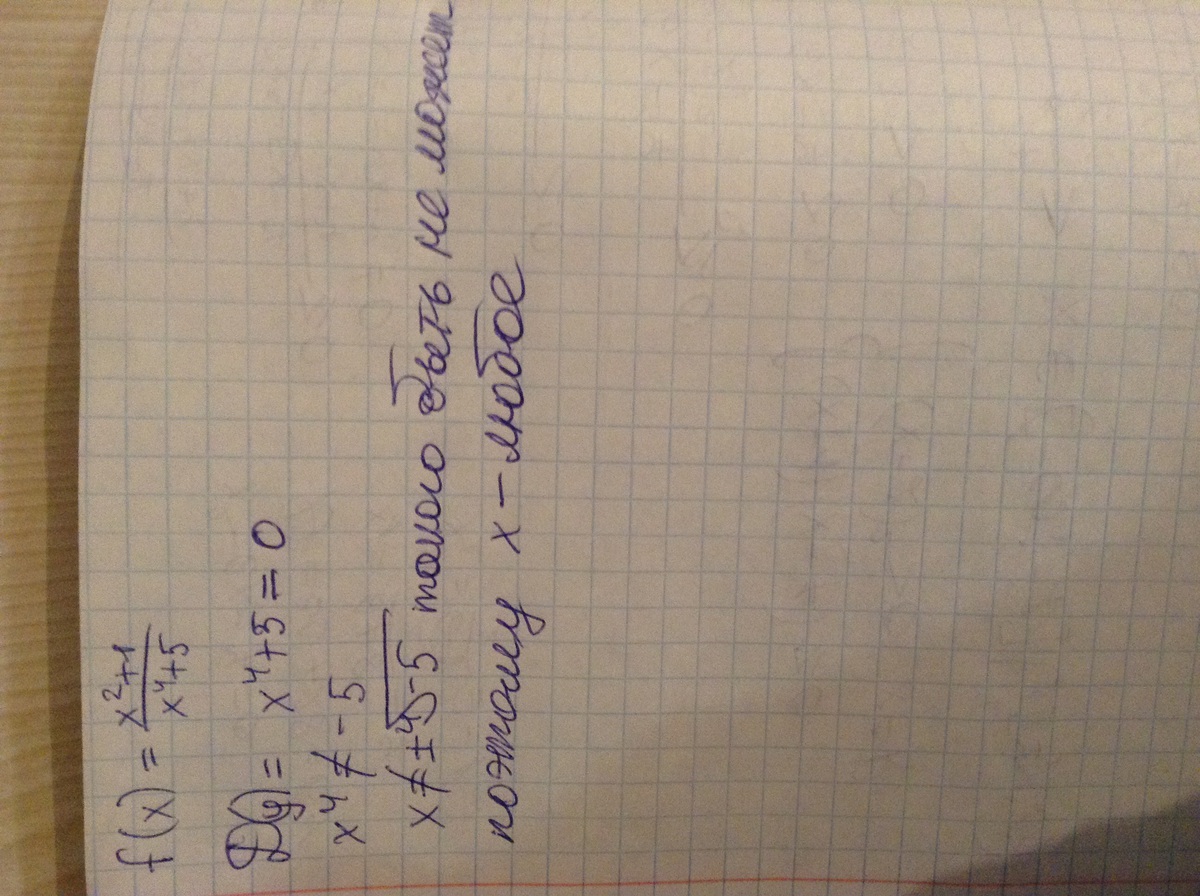 f(x) = \frac{x^2+1}{x^4+5}
D(y) = x^4+5=0
x^4 ≠ -5
x ≠ ± \sqrt[4]{-5} такого быть не может
поэтому x – любое